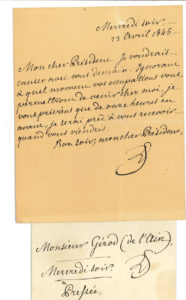 Mercredi soir.
23 Avril 1845.
Mon cher Président, je voudrais
causer avec vous demain. Ignorant
à quel moment vos occupations vous
permettront de venir chez moi, je
vous préviens que de onze heures en
avant, je serai prêt à vous recevoir
quand vous viendrez
Bon soir, mon cher Président,
Monsieur Girod (de l'Ain)
Mercredi soir.
Pressée.